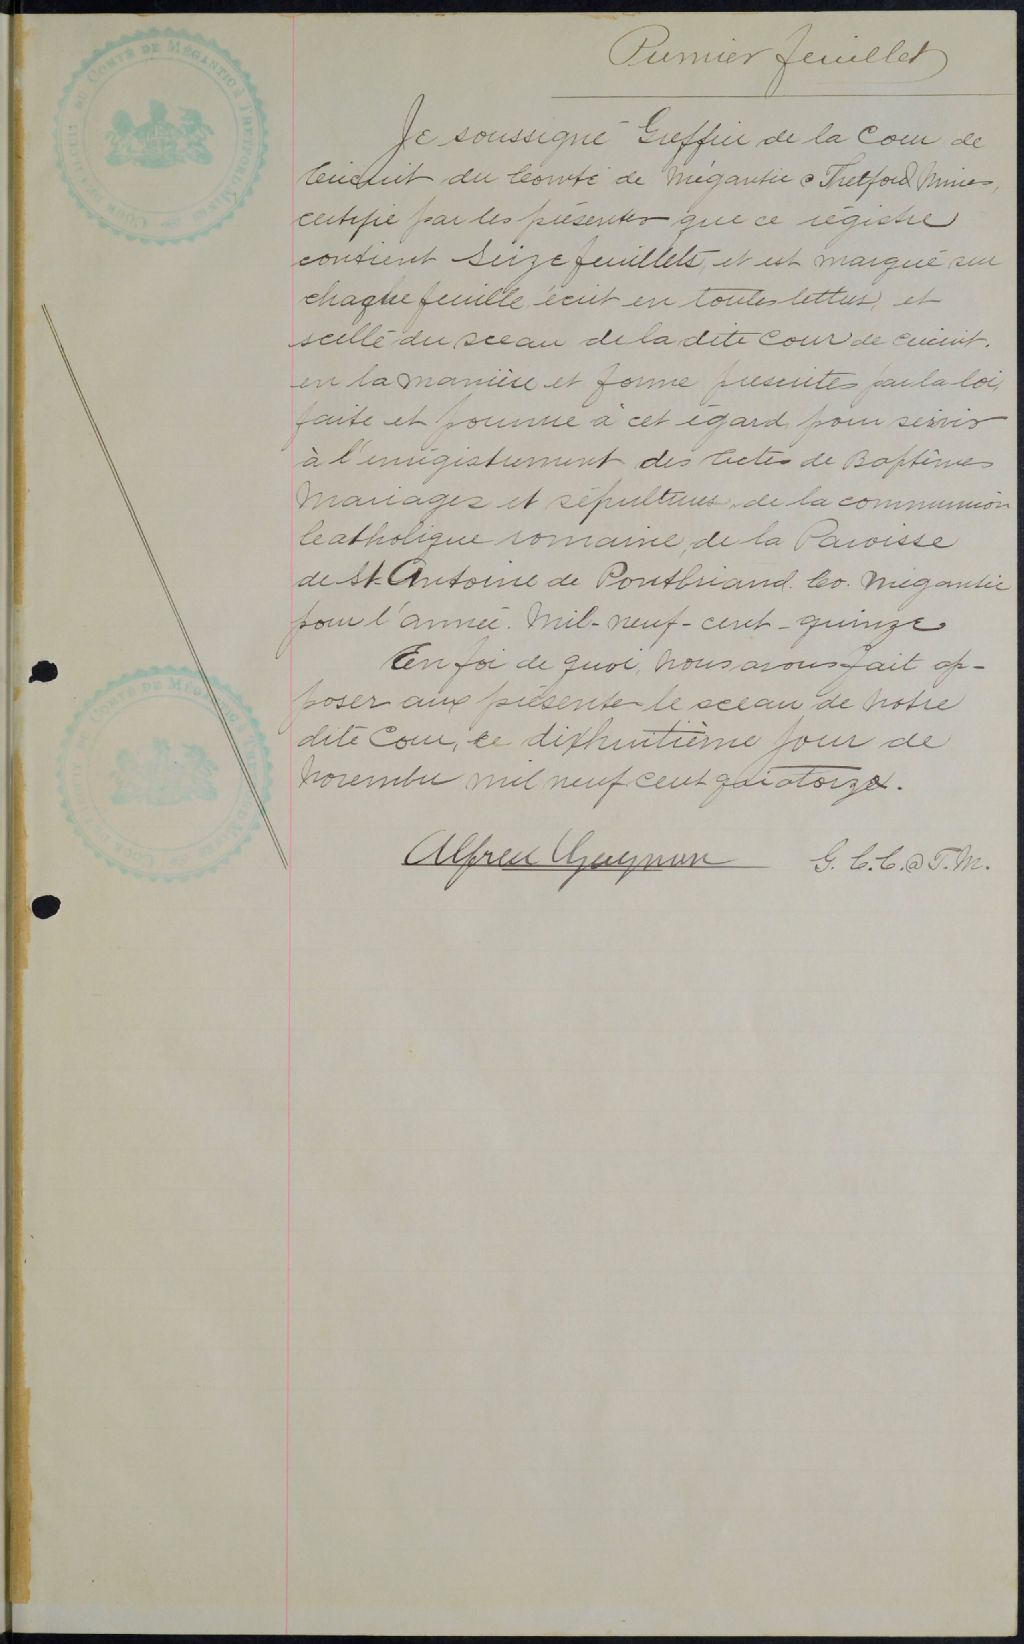 Premier feuillet
COUR DE CIRCUIT DU COMTÉ DE MÉGANTIC À THETFORD MINES
Je soussigné Greffier de la Cour de
Circuit du Comté de Mégantic @ Thetford Mines,
certifie par les présentes que ce régistre
contient Seize feuillets, et est marqué sur
chaque feuille écrit en toutes lettres, et
scellé du sceau de la dite Cour de circuit.
en la manière et forme prescrites par la loi,
faite et pourvue à cet égard, pour servir
à l'enrégistrement des Actes de Baptêmes
Mariages et sépultures, de la communion
Catholique romaine, de la Paroisse
de St. Antoine de Pontbriand. Co. Mégantic
pour l'année. Mil-neuf-cent-quinze
En foi de quoi, nous avons fait ap-
poser aux présentes le sceau de notre
dite Cour, ce dixhuitième jour de
Novembre mil neuf cent quatorze.
COUR DE CIRCUIT DU COMTÉ DE MÉGANTIC À THETFORD MINES
Alfred Gagnon G. C. C. @ T. M.